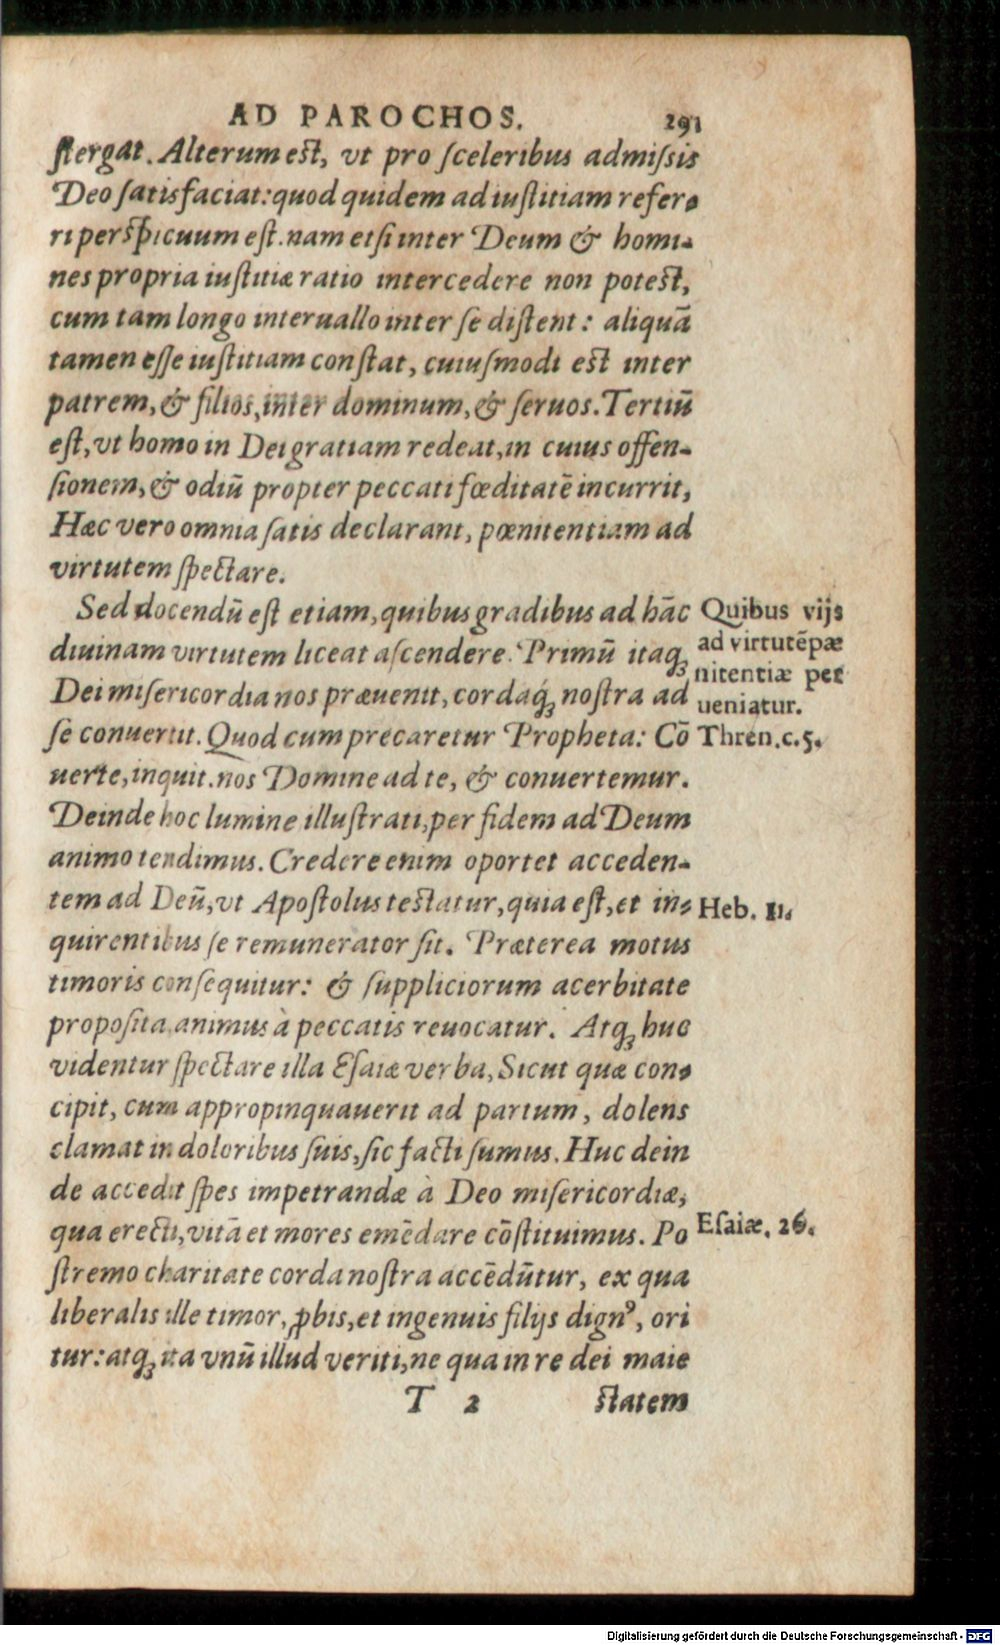 AD PAROCHOS. 291
ſtergat. Alterum eſt, vt pro ſceleribus admiſsis
Deo ſatisfaciat: quod quidem ad iuſtitiam refer-
ri perſpicuum eſt. nam etſi inter Deum & homi-
nes propria iuſtitiæ ratio intercedere non poteſt,
cum tam longo interuallo inter ſe diſtent: aliquā
tamen eſſe iuſtitiam conſtat, cuiuſmodi eſt inter
patrem, & filios, inter dominum, & ſeruos. Tertiū
eſt, vt homo in Dei gratiam redeat, in cuius offen-
ſionem, & odiū propter peccati fœditatē incurrit,
Hæc vero omnia ſatis declarant, pœnitentiam ad
virtutem ſpectare.
Sed docendū eſt etiam, quibus gradibus ad hāc
diuinam virtutem liceat aſcendere. Primū itaqꝫ
Dei miſericordia nos præuenit, cordaqꝫ́ noſtra ad
ſe conuertit. Quod cum precaretur Propheta: Cō
uerte, inquit. nos Domine ad te, & conuertemur.
Deinde hoc lumine illuſtrati, per fidem ad Deum
animo tendimus. Credere enim oportet acceden-
tem ad Deū, vt Apoſtolus teſtatur, quia eſt, et in-
quirentibus ſe remunerator ſit. Præterea motus
timoris conſequitur: & ſuppliciorum acerbitate
propoſita animus à peccatis reuocatur. Atqꝫ huc
videntur ſpectare illa Eſaiæ verba, Sicut quæ con-
cipit, cum appropinquauerit ad partum, dolens
clamat in doloribus ſuis, ſic facti ſumus. Huc dein
de accedit ſpes impetrandæ à Deo miſericordiæ,
qua erecti, vitā et mores emēdare cōſtituimus. Po
ſtremo charitate corda noſtra accēdūtur, ex qua
liberalis ille timor, ꝓbis, et ingenuis filijs dignꝰ, ori
tur: atqꝫ ita vnū illud veriti, ne qua in re dei maie
T 2 ſtatem
Quibus vijs
ad virtutē pæ
nitentiæ per
ueniatur.
Thren. c. 5.
Heb. 11.
Eſaiæ. 26.
Digitalisierung gefördert durch die Deutsche Forschungsgemeinschaft - DFG